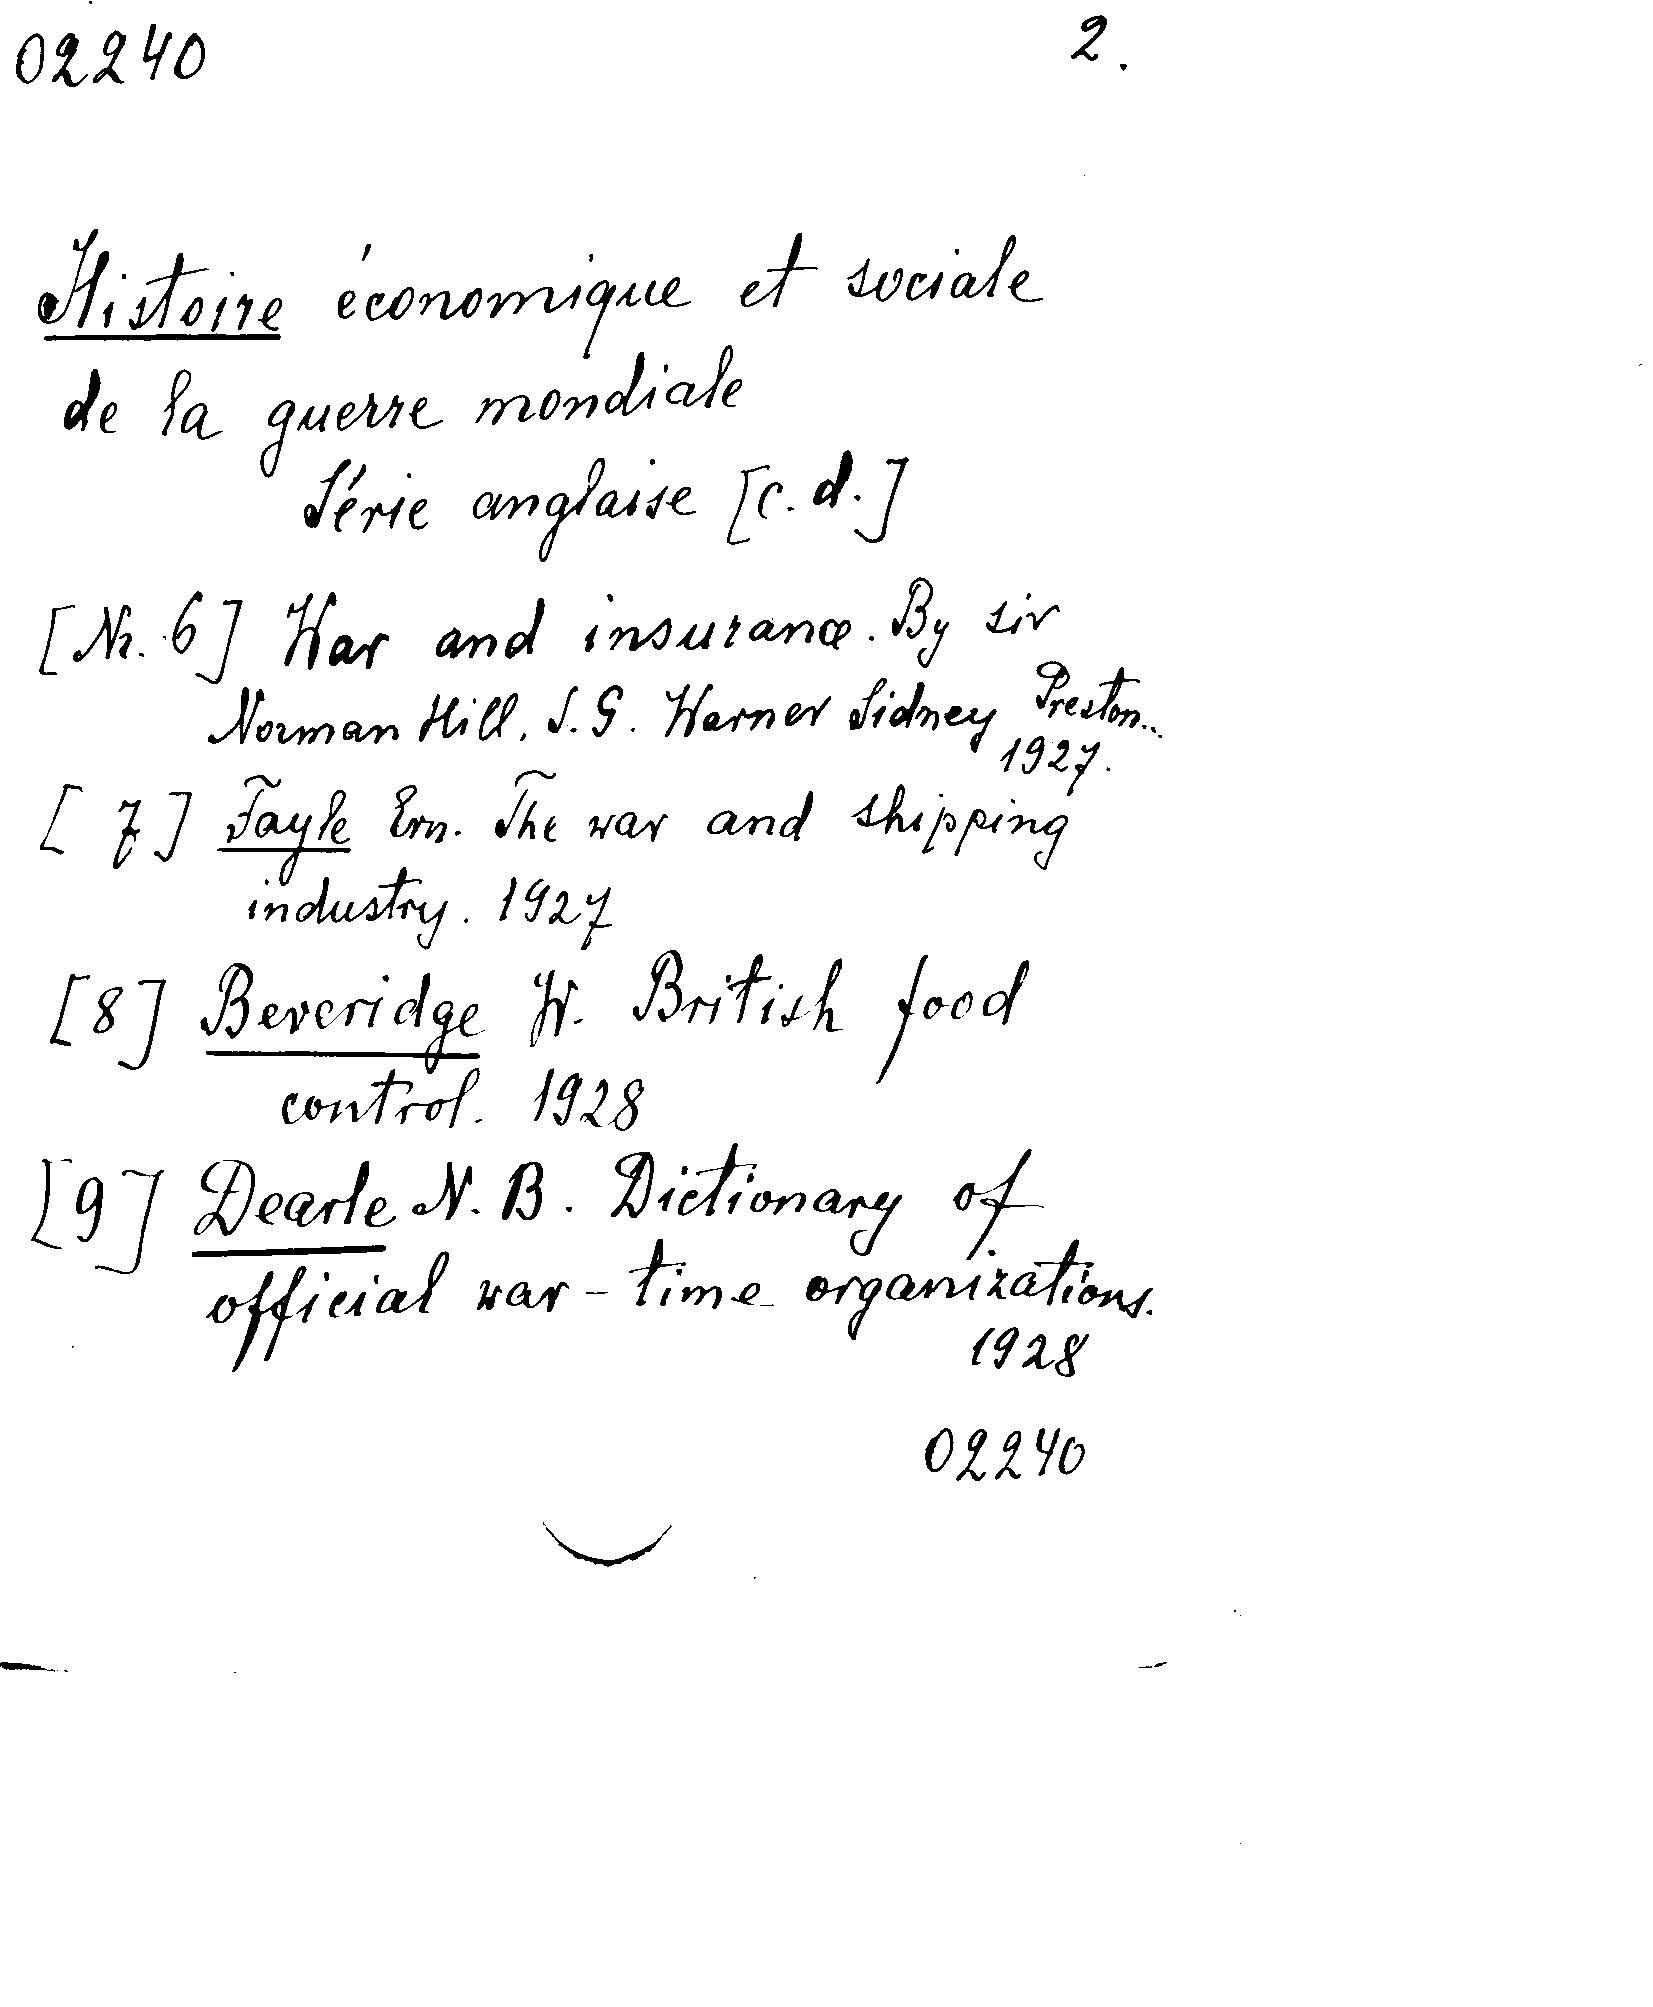 02240 2.
Histoire économique et sociale
de la guerre mondiale
Série anglaise [c. d.]
[Nr. 6] War and insurance. By sir
Norman Hill, S. G. Warner Sidney Preston..
1927.
[ 7] Fayle Ern. The war and shipping
industry. 1927
[8] Beveridge W. British food
control. 1928
[9] Dearle N. B. Dictionary of
official war-time organizations.
1928
02240